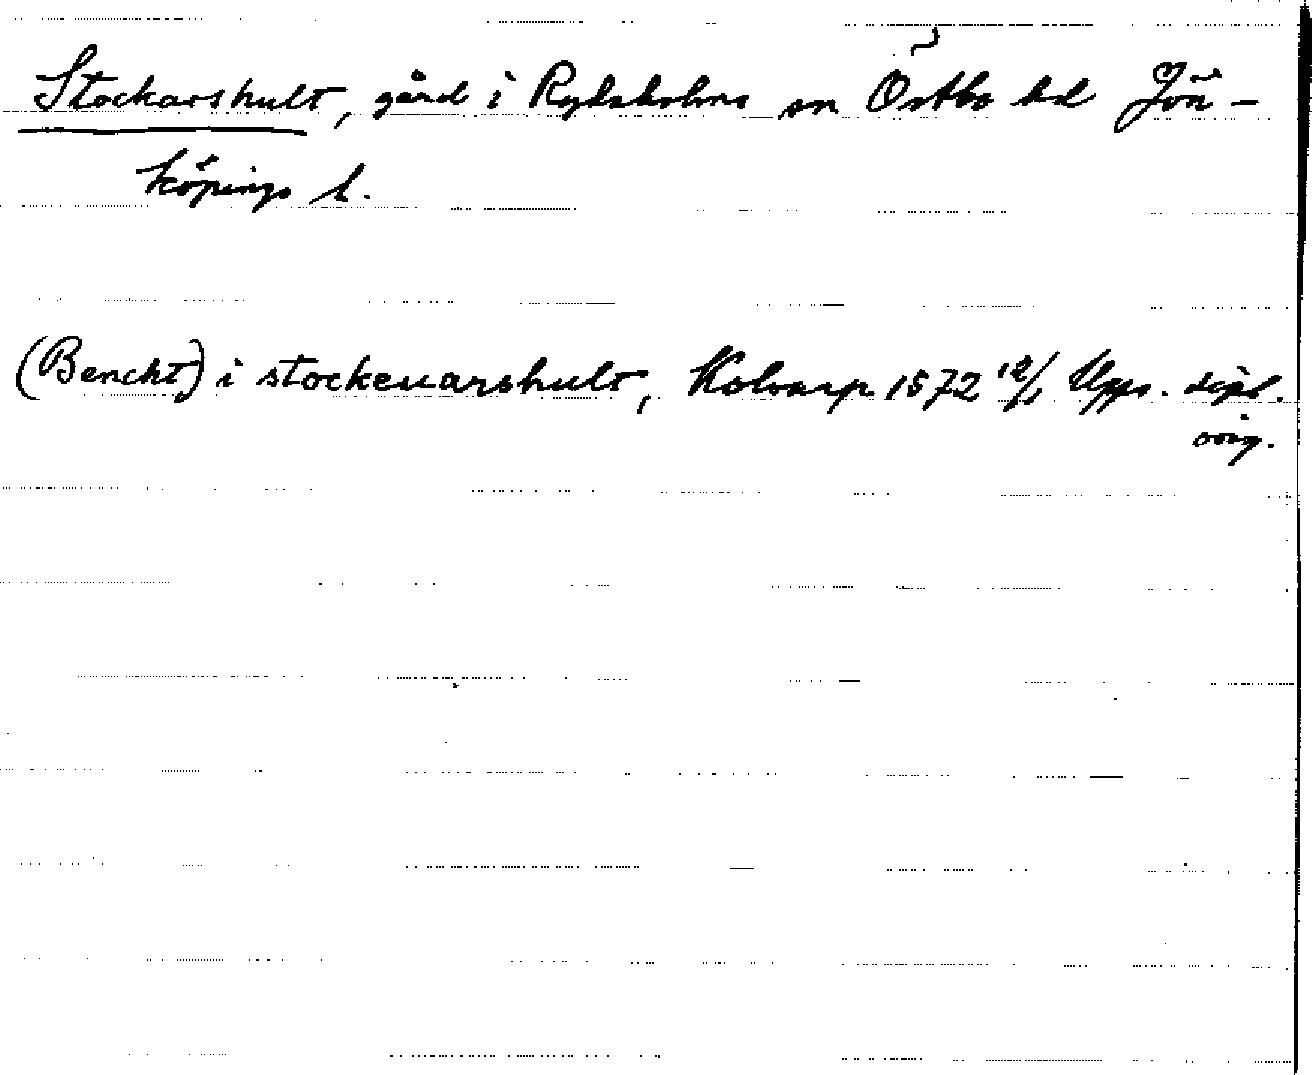 Stockarshult, gård i Rydaholms sn Östbo hd Jön-
köpings l.
(Bencht) i stockeuarshult, Kolvarp 1572 12/1 Upps. dipl.
orig.